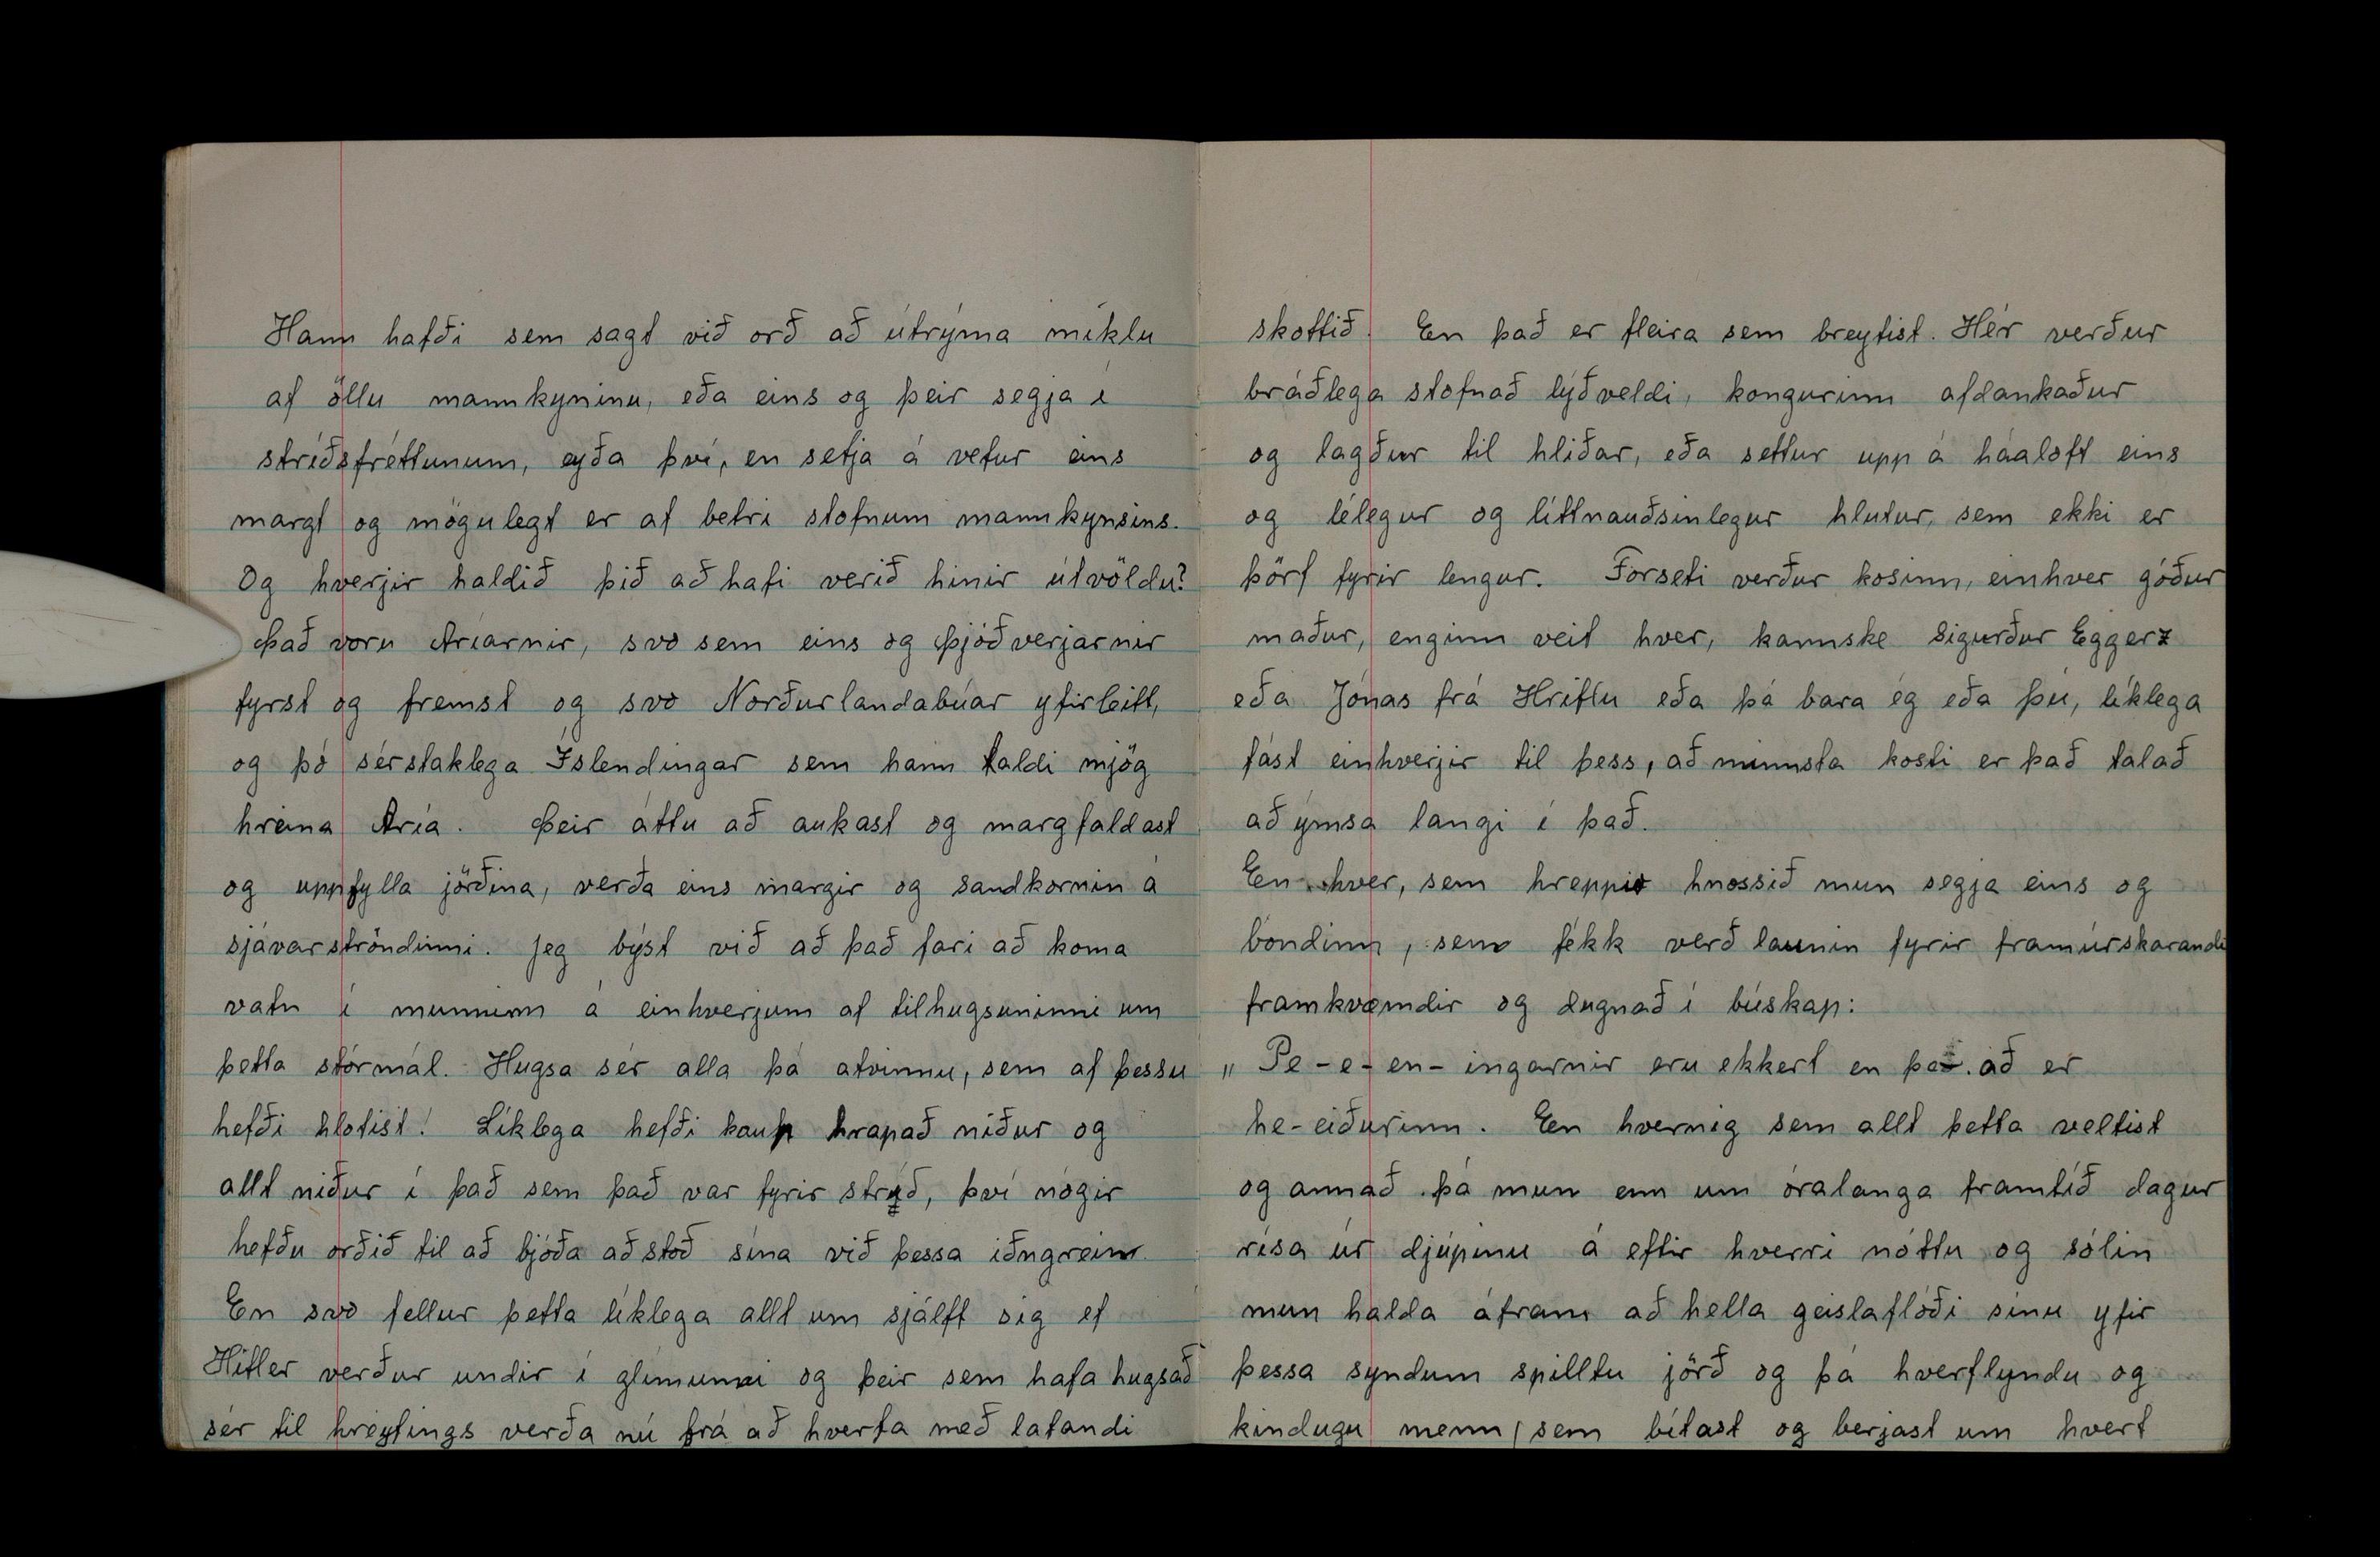 Hann hafði sem sagt við orð að útrýma miklu
af öllu mannkyninu, eða eins og þeir segja í
stríðsfréttunum, eyða því, en setja á vetur eins
margt og mögulegt er af betri stofnum mannkynsins.
Og hverjir haldið þið að hafi verið hinir útvöldu?
Það voru Aríarnir, svo sem eins og Þjóðverjarnir
fyrst og fremst og svo Norðurlandabúar yfirleitt,
og þó sérstaklega Íslendingar sem hann taldi mjög
hreina Aría. Þeir áttu að aukast og margfaldast
og uppfylla jörðina, verða eins margir og sandkornin á
sjávarströndinni. Jeg býst við að það fari að koma
vatn í munninn á einhverjum af tilhugsuninni um
þetta stórmál. Hugsa sér alla þá atvinnu, sem af þessu
hefði hlotist! Líklega hefði kaup hrapað niður og
allt niður í það sem það var fyrir stríð, því nógir
hefðu orðið til að bjóða aðstoð sína við þessa iðngrein.
En svo fellur þetta líklega allt um sjálft sig ef
Hitler verður undir í glímunni og þeir sem hafa hugsað
sér til hreyfings verða nú frá að hverfa með lafandi
skottið. En það er fleira sem breytist. Hér verður
bráðlega stofnað lýðveldi, kongurinn afdankaður
og lagður til hliðar, eða settur upp á háaloft eins
og lélegur og líttnauðsinlegur hlutur, sem ekki er
þörf fyrir lengur. Forseti verður kosinn, einhver góður
maður, enginn veit hver, kannske Sigurður Eggerz
eða Jónas frá Hriflu eða þá bara ég eða þú, líklega
fást einhverjir til þess, að minnsta kosti er það talað
að ýmsa langi í það.
En hver, sem hreppir hnossið mun segja eins og
bóndinn, sem fékk verðlaunin fyrir framúrskarandi
framkvæmdir og dugnað í búskap:
„ Pe-e-en-ingarnir eru ekkert en það að er
he-eiðurinn. En hvernig sem allt þetta veltist
og annað þá mun enn um óralanga framtíð dagur
rísa úr djúpinu á eftir hverri nóttu og sólin
mun halda áfram að hella geislaflóði sínu yfir
þessa syndum spilltu jörð og þá hverflyndu og
kindugu menn, sem bítast og berjast um hvert